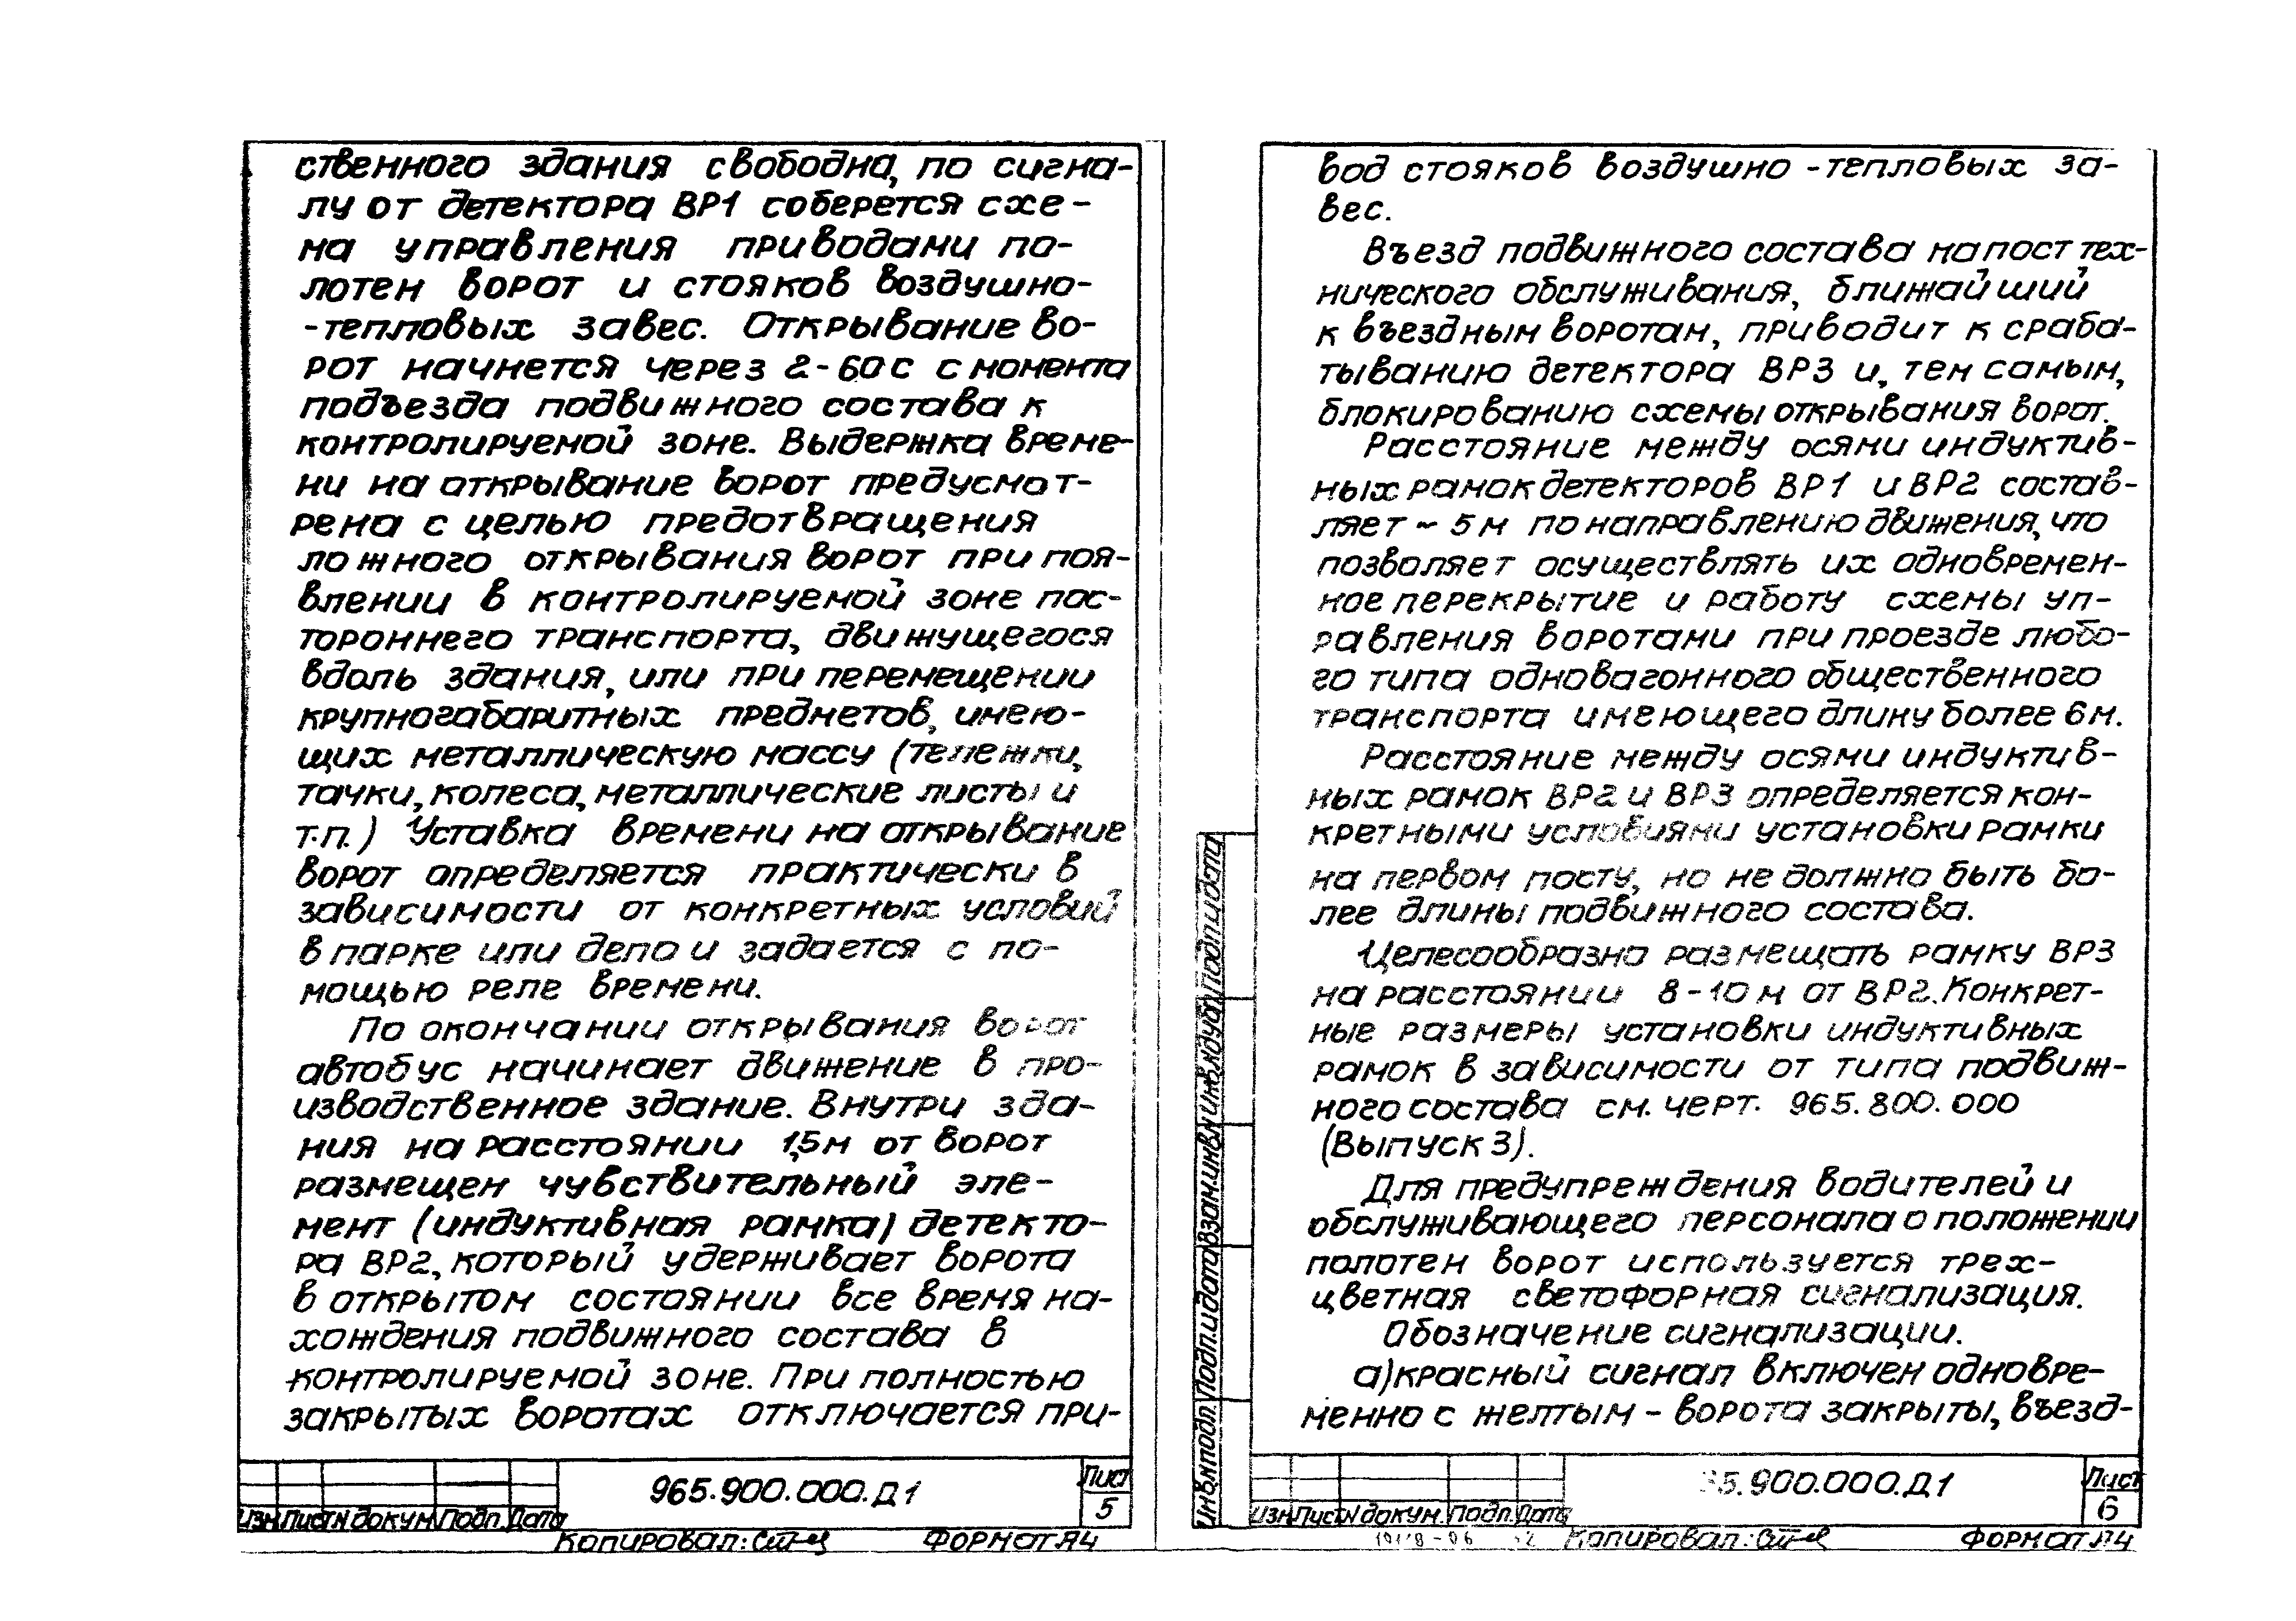 ственного здания свободна, по сигна-
лу от детектора ВР1 соберется схе-
ма управления приводами по-
лотен ворот и стояков воздушно-
-тепловых завес. Открывание во-
рот начнется через 2-60с с момента
подъезда подвижного состава к
контролируемой зоне. Выдержка време-
ни на открывание ворот предусмот-
рена с целью предотвращения
ложного открывания ворот при поя-
влении в контролируемой зоне пос-
тороннего транспорта, движущегося
вдоль здания, или при перемещении
крупногабаритных предметов, имею-
щих металлическую массу (тележки,
тачки, колеса, металлические листы и
т.п.) Уставка времени на открывание
ворот определяется практически в
зависимости от конкретных условий
в парке или депо и задается с по-
мощью реле времени.
По окончании открывания ворот
автобус начинает движение в про-
изводственное здание. Внутри зда-
ния на расстоянии 1,5м от ворот
размещен чувствительный эле-
мент (индуктивная рамка) детекто-
ра ВР2, который удерживает ворота
в открытом состоянии все время на-
хождения подвижного состава в
контролируемой зоне. При полностью
закрытых воротах отключается при-
965.900.000.Д1
Лист
5
Изм. Лист N докум. Подп. Дата
Копировал:
Формат А4
вод стояков воздушно-тепловых за-
вес.
Въезд подвижного состава на пост тех-
нического обслуживания, ближайший
к въездным воротам, приводит к сраба-
тыванию детектора ВР3 и, тем самым,
блокированию схемы открывания ворот.
Расстояние между осями индуктив-
ных рамок детекторов ВР1 и ВР2 состав-
ляет ~ 5м по направлению движения, что
позволяет осуществлять их одновремен-
ное перекрытие и работу схемы уп-
равления воротами при проезде любо-
го типа одновагонного общественного
транспорта имеющего длину более 6м.
Расстояние между осями индуктив-
ных рамок ВР2 и ВР3 определяется кон-
кретными условиями установки рамки
на первом посту, но не должно быть бо-
лее длины подвижного состава.
Целесообразно размещать рамку ВР3
на расстоянии 8-10м от ВР2. Конкрет-
ные размеры установки индуктивных
рамок в зависимости от типа подвиж-
ного состава см. черт. 965.800.000
(Выпуск 3).
Для предупреждения водителей и
обслуживающего персонала о положении
полотен ворот используется трех-
цветная светофорная сигнализация.
Обозначение сигнализации.
а)красный сигнал включен одновре-
менно с желтым - ворота закрыты, въезд-
Инв.N подл. Подп. и дата Взам.инв.N Инв.N дубл. Подп. и дата
5.900.000.Д1
Лист
6
Изм. Лист N докум. Подп. Дата
Копировал:
Формат А4